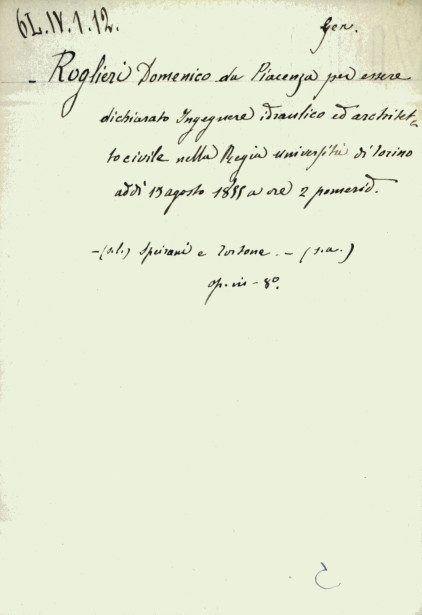 6L.IV.1.12.
Gen.
- Roglieri Domenico da Piacenza per essere
dichiarato Ingegnere idraulico ed architet-
to civile nella Regia università di Torino
addì 13 agosto 1855 a ore 2 pomerid.
- (s.l.) Speirani e Tortone. - (s.a.)
op. in - 8º.